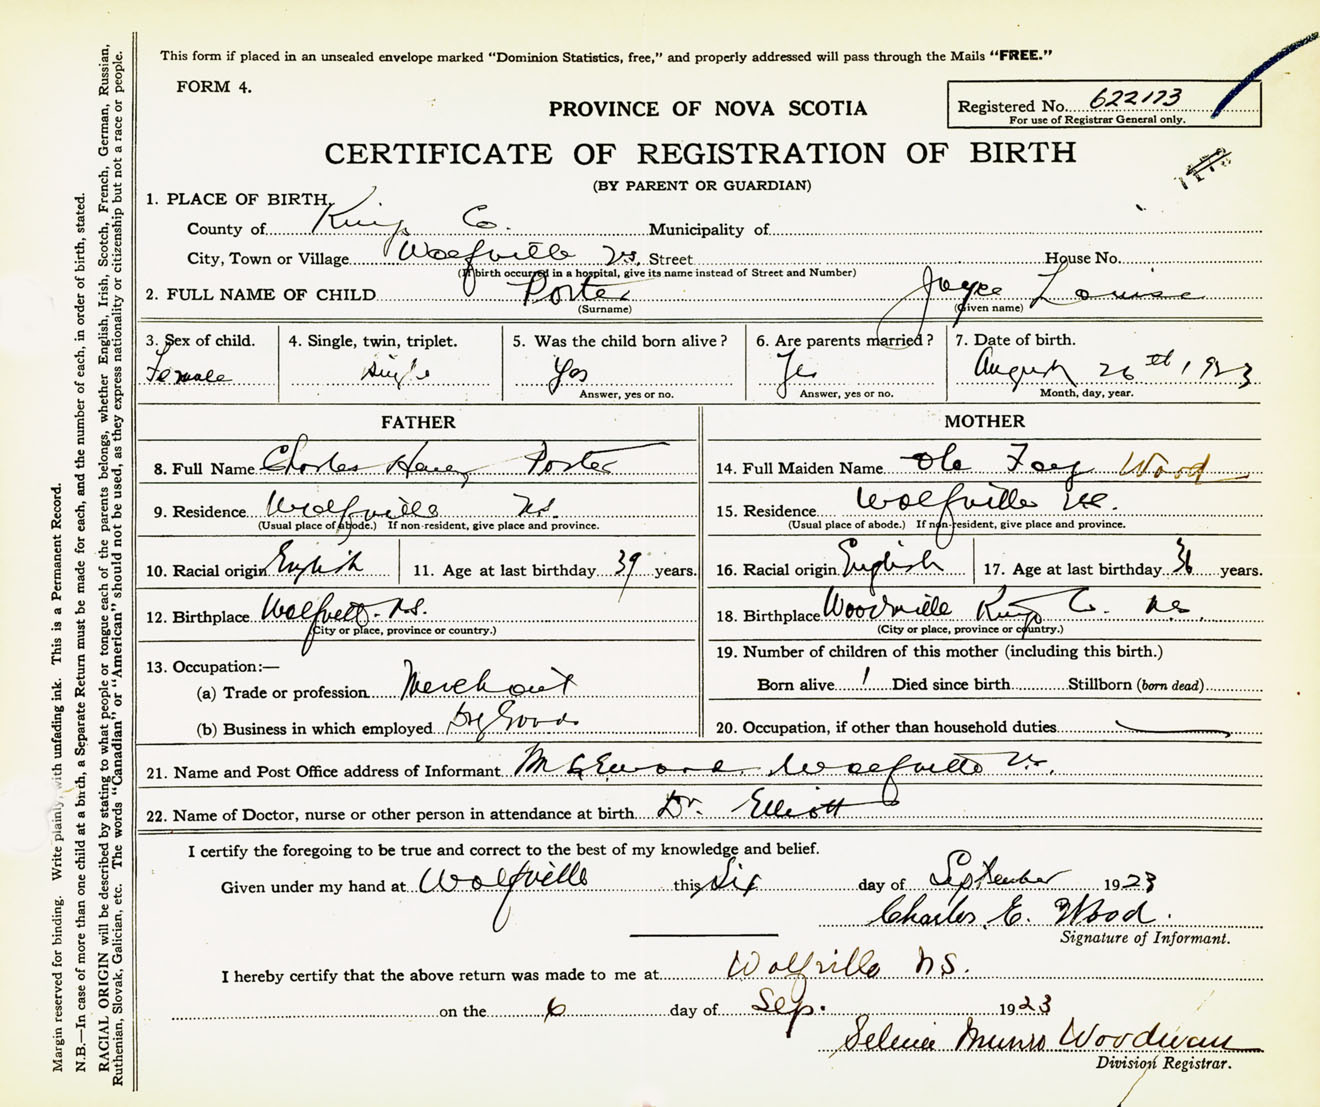 This form if placed in an unsealed envelope marked "Dominion Statistics, free," and properly addressed will pass through the Mails "FREE."
FORM 4.
PROVINCE OF NOVA SCOTIA
Registered No. 622173
For use of Registrar General only.
CERTIFICATE OF REGISTRATION OF BIRTH
(BY PARENT OR GUARDIAN)
1. PLACE OF BIRTH
County of Kings Co. Municipality of
City, Town or Village Wolfville N.S. Street House No.
(If birth occurred in a hospital, give its name instead of Street and Number)
2. FULL NAME OF CHILD Porter Joyce Louise
(Surname) (Given name)
3. Sex of child. 4. Single, twin, triplet. 5. Was the child born alive? 6. Are parents married? 7. Date of birth.
Female Single Yes Yes August 26th, 1923
Answer, yes or no. Answer, yes or no. Month, day, year.
FATHER MOTHER
8. Full Name Charles Harry Porter 14. Full Maiden Name Ola Fay Wood
9. Residence Wolfville N.S. 15. Residence Wolfville N.S.
(Usual place of abode.) If non-resident, give place and province. (Usual place of abode.) If non-resident, give place and province.
10. Racial origin English 11. Age at last birthday 39 years. 16. Racial origin English 17. Age at last birthday years.
12. Birthplace Wolfville. N.S. 18. Birthplace Woodville Kings Co. N.S.
(City or place, province or country.) (City or place, province or country.)
13. Occupation:— 19. Number of children of this mother (including this birth.)
(a) Trade or profession Merchant Born alive 1 Died since birth Stillborn (born dead)
(b) Business in which employed Dry Goods 20. Occupation, if other than household duties
21. Name and Post Office address of Informant Wolfville N.S.
22. Name of Doctor, nurse or other person in attendance at birth Dr. Elliott
I certify the foregoing to be true and correct to the best of my knowledge and belief.
Given under my hand at Wolfville this Six day of September 1923
Charles E. Wood.
Signature of Informant.
I hereby certify that the above return was made to me at Wolfville N.S.
on the 6 day of Sep. 1923
Selina Munro Woodman
Division Registrar.
Margin reserved for binding. Write plainly, with unfading ink. This is a Permanent Record.
N.B.—In case of more than one child at a birth, a Separate Return must be made for each, and the number of each, in order of birth, stated.
RACIAL ORIGIN will be described by stating to what people or tongue each of the parents belongs, whether English, Irish, Scotch, French, German, Russian,
Ruthenian, Slovak, Galician, etc. The words "Canadian" or "American" should not be used, as they express nationality or citizenship but not a race or people.